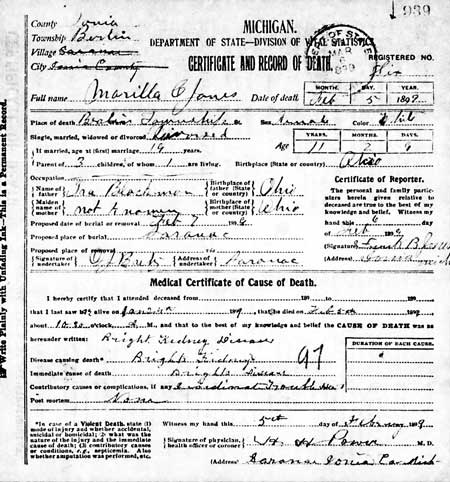 1939
County Ionia
Township Berlin
Village Saranac
City Ionia County
MICHIGAN.
DEPARTMENT OF STATE—DIVISION OF VITAL STATISTICS
CERTIFICATE AND RECORD OF DEATH.
REGISTERED NO.
Full name Marilla C Jones Date of death
MONTH. DAY. YEAR.
Feb 5 1899
Place of death Berlin Township St. Sex Female Color White
Single, married, widowed or divorced Divorced
YEARS. MONTHS. DAYS.
If married, age at (first) marriage 19 years. Age
Parent of 3 children, of whom 1 are living. Birthplace (State or country) Ohio
Occupation
Name of father Ira Blackman Birthplace of father (State or country) Ohio
Maiden name of mother not Known Birthplace of mother (State or country) Ohio
Proposed date of burial or removal Feb 7
Proposed place of burial Saranac
Proposed place of removal
Signature of undertaker Address of undertaker Saranac
Certificate of Reporter.
The personal and family particulars herein given relative to deceased are true to the best of my knowledge and belief. Witness my
hand this 6 day
of Feb
(Signature)
(Address) Ionia Mich
Medical Certificate of Cause of Death.
I hereby certify that I attended deceased from 189 to 189
that I last saw h alive on 189 that he died on Feb 5th 189
about 10.30 o'clock M., and that to the best of my knowledge and belief the CAUSE OF DEATH was as
hereunder written: Bright Kidney Disease
DURATION OF EACH CAUSE.
Disease causing death* Brights Kidneys
97
Immediate cause of death Brights Disease
Contributory causes or complications, if any
Post mortem None
*In case of a Violent Death, state (1) mode of injury and whether accidental, suicidal or homicidal; (2) what was the nature of the injury and the immediate cause of death; (3) contributory causes or conditions, e. g., septicemia. Also whether amputation was performed, etc.
Witness my hand this 5th day of February 189
Signature of physician, health officer or coroner H. H. Power M. D.
(Address) Saranac Ionia Co. Mich
Write Plainly with Unfading Ink—This is a Permanent Record.